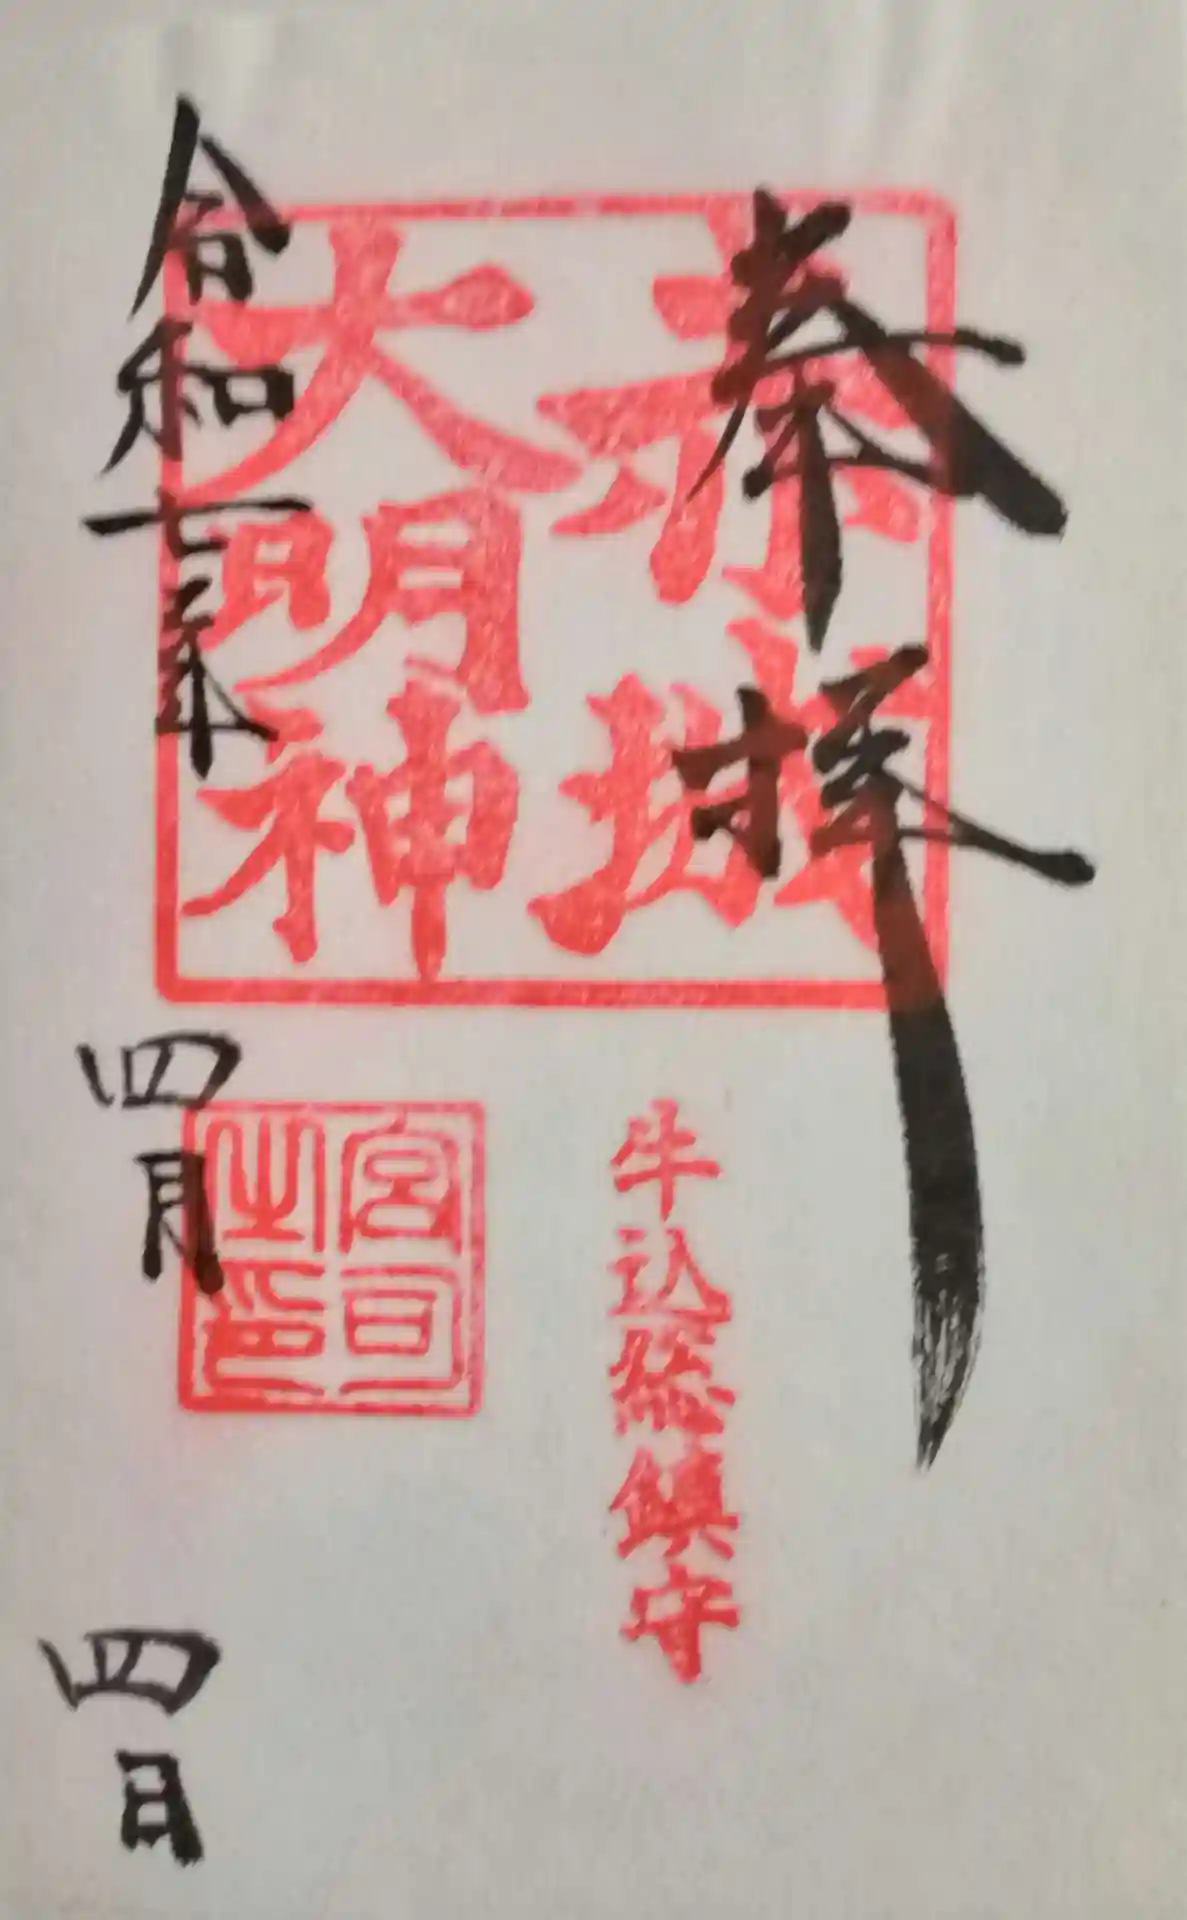 奉拝
赤城
大明神
牛込総鎮守
宮司
之印
令和七年
四月
四日